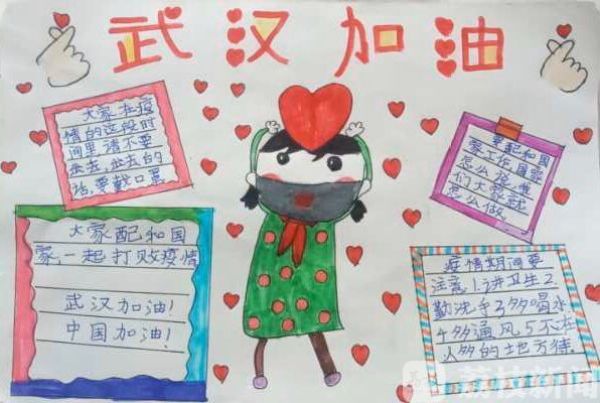 武汉加油
大家在疫
情的这段时
间里请不要
出去,出去的
话,要戴口罩
要配和国
家工作,国家
怎么说,
们大家就
怎么做。
大家配和国
家,一起打败疫情
武汉加油!
中国加油!
疫情期间要
注意1.讲卫生2
勤洗手3多喝水
4多通风,5不在
人多的地方待.
荔枝新闻